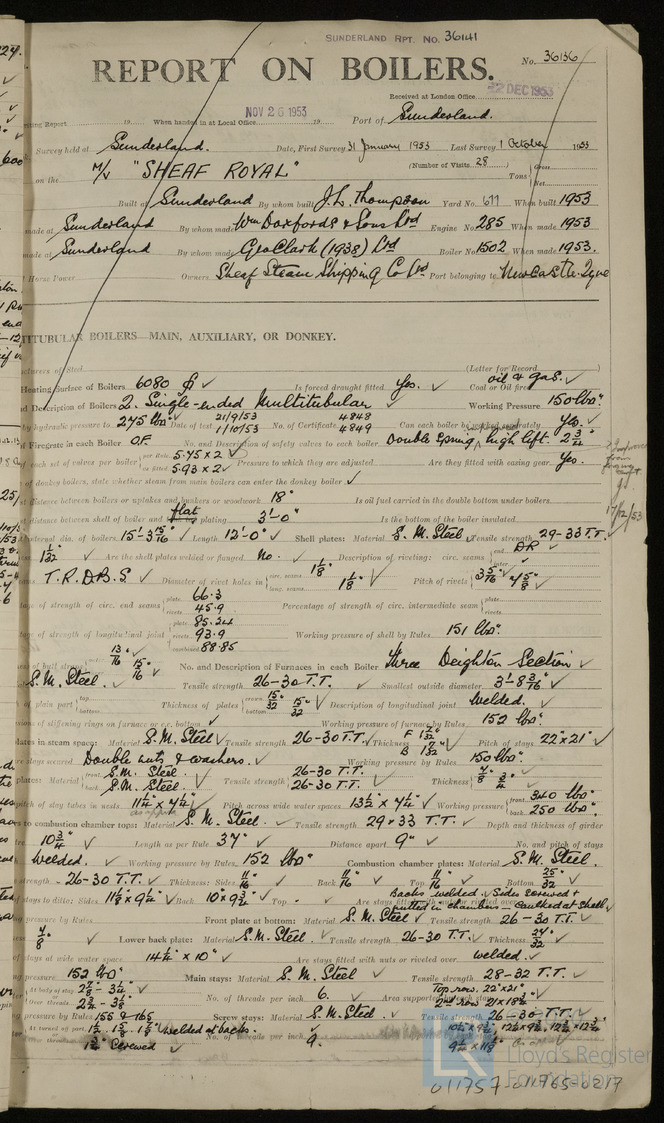 SUNDERLAND RPT. No. 36141
No. 36136
REPORT ON BOILERS.
Received at London Office 22 DEC 1953
NOV 26 1953
When handed in at Local Office 19 Port of Sunderland.
Survey held at Sunderland. Date, First Survey 31 January 1953 Last Survey 1 October 1953
on the M/V "SHEAF ROYAL" (Number of Visits 28) Tons Gross Net
Built at Sunderland By whom built J.L. Thompson Yard No. 677 When built 1953
made at Sunderland By whom made Wm Doxford & Sons Ltd Engine No. 285 When made 1953
made at Sunderland By whom made Geo Clark (1938) Ltd Boiler No. 1502 When made 1953.
Horse Power Owners Sheaf Steam Shipping Co Ltd Port belonging to Newcastle-Tyne
MULTITUBULAR BOILERS—MAIN, AUXILIARY, OR DONKEY.
(Letter for Record
Heating Surface of Boilers 6080 ✓ Is forced draught fitted Yes. ✓ Coal or Oil fired oil & gas. ✓
Description of Boilers 2. Single-ended Multitubular ✓ Working Pressure 150 lbs
by hydraulic pressure to 275 lbs Date of test 21/9/53 1/10/53 No. of Certificate 4848 4849 Can each boiler be worked separately Yes. ✓
Firegrate in each Boiler O.F. No. and Description of safety valves to each boiler Double Spring high lift. 2 3/4"
of each set of valves per boiler per Rule 5.75 x 2 as fitted 5.93 x 2 ✓ Pressure to which they are adjusted Are they fitted with easing gear Yes. ✓
of donkey boilers, state whether steam from main boilers can enter the donkey boiler ✓
distance between boilers or uptakes and bunkers or woodwork 18" Is oil fuel carried in the double bottom under boilers
distance between shell of boiler and flat plating 3'-0" Is the bottom of the boiler insulated
dia. of boilers 15'-3 15/16" ✓ Length 12'-0" ✓ Shell plates: Material S.M. Steel ✓ Tensile strength 29-33 T.T.
1 1/32 ✓ Are the shell plates welded or flanged No. ✓ Description of riveting: circ. seams end D.R ✓
T.R.D.B.S ✓ Diameter of rivet holes in circ. seams 1 1/8 long. seams 1 1/8" ✓ Pitch of rivets
of strength of circ. end seams plate 66.3 rivets 45.9 Percentage of strength of circ. intermediate seam
of strength of longitudinal joint plate 85.24 rivets 93.9 combined 88.85 Working pressure of shell by Rules 151 lbs.
of butt straps 13/16 15/16" ✓ No. and Description of Furnaces in each Boiler Three Deighton Section ✓
S.M. Steel. ✓ Tensile strength 26-30 T.T. ✓ Smallest outside diameter 3'-8 3/16" ✓
of plain part top bottom Thickness of plates crown 15/32 bottom 15/32 ✓ Description of longitudinal joint Welded. ✓
of stiffening rings on furnace or c.c. bottom ✓ Working pressure of furnace by Rules 152 lbs.
plates in steam space: Material S.M. Steel ✓ Tensile strength 26-30 T.T. ✓ Thickness Pitch of stays 22" x 21" ✓
stays secured Double nuts & washers. ✓ Working pressure by Rules 150 lbs.
plates: Material front S.M. Steel. back S.M. Steel. Tensile strength 26-30 T.T. 26-30 T.T. Thickness 7/8 3/4"
pitch of stay tubes in nests 11 1/4" x 7 1/4" ✓ Pitch across wide water spaces 13 1/2" x 7 1/4" ✓ Working pressure front 340 lbs. back 250 lbs.
to combustion chamber tops: Material S.M. Steel. Tensile strength 29-33 T.T. ✓ Depth and thickness of girder
10 3/4" Length as per Rule 37" ✓ Distance apart 9" ✓ No. and pitch of stays
Welded. ✓ Working pressure by Rules, 152 lbs Combustion chamber plates: Material S.M. Steel.
strength 26-30 T.T. ✓ Thickness: Sides 11/16 ✓ Back 11/16 ✓ Top 11/16 ✓ Bottom 25/32
of stays to ditto: Sides 11 1/8" x 9 1/2" ✓ Back 10" x 9 3/4" ✓ Top Are stays fitted with nuts or riveted over Backs welded. Sides screwed & nutted in chambers - Caulked at Shell ✓
pressure by Rules Front plate at bottom: Material S.M. Steel ✓ Tensile strength 26-30 T.T. ✓
7/8 ✓ Lower back plate: Material S.M. Steel. ✓ Tensile strength 26-30 T.T. ✓ Thickness 27/32 ✓
of stays at wide water space 14 1/4" x 10" ✓ Are stays fitted with nuts or riveted over welded. ✓
pressure 152 lbs Main stays: Material S.M. Steel Tensile strength 28-32 T.T. ✓
At body of stay Over threads No. of threads per inch 6. Area supported by each stay Top row 22" x 21" 2nd row 21" x 18 1/2" ✓
pressure by Rules 155 & 165 Screw stays: Material S.M. Steel ✓ Tensile strength 26-30 T.T. ✓
At turned off part welded at backs. ✓ No. of threads per inch 9.
1 3/4" Screwed ✓
17/12/53
Lloyd's Register
Foundation
011757-011765-0217